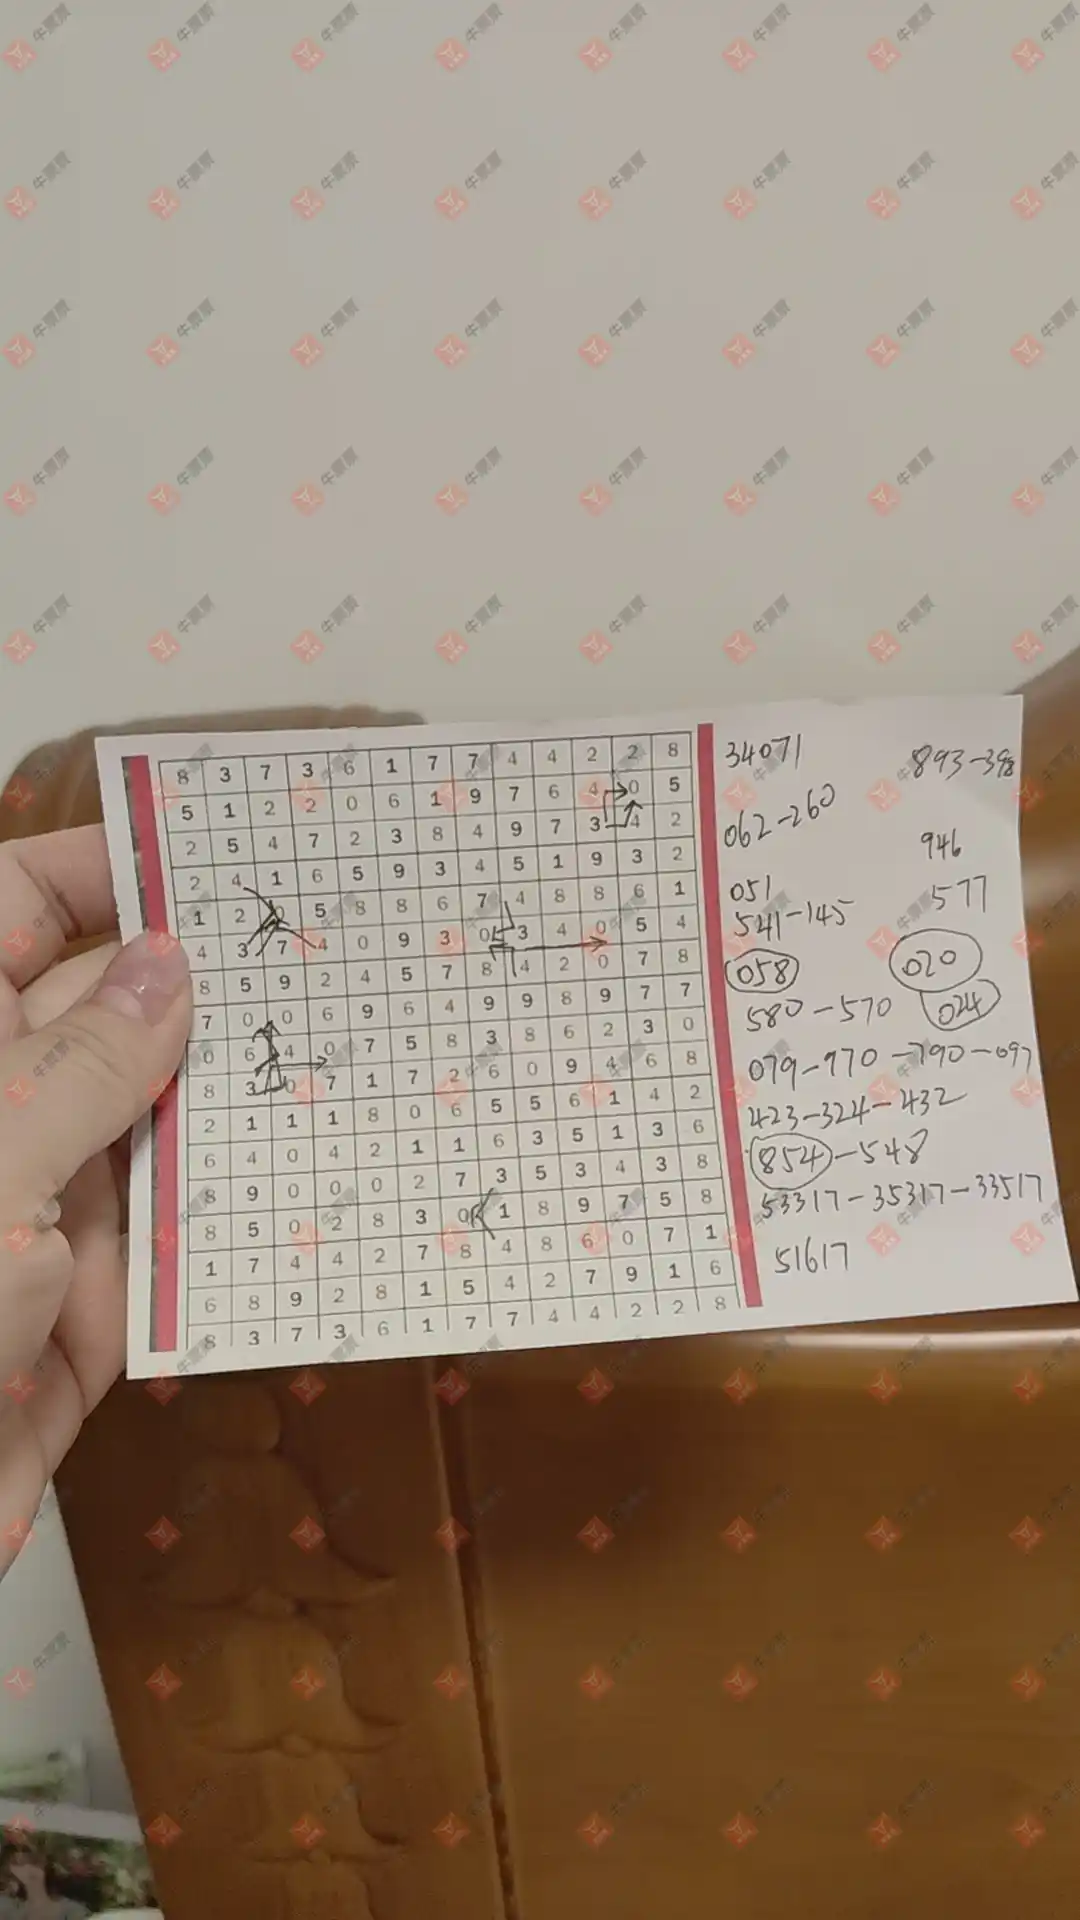 8 3 7 3 6 1 7 7 4 4 2 2 8
5 1 2 2 0 6 1 9 7 6 4 0 5
2 5 4 7 2 3 8 4 9 7 3 4 2
2 4 1 6 5 9 3 4 5 1 9 3 2
1 2 0 5 8 8 6 7 4 8 8 6 1
4 3 7 4 0 9 3 0 3 4 0 5 4
8 5 9 2 4 5 7 8 4 2 0 7 8
7 0 0 6 9 6 4 9 9 8 9 7 7
0 6 4 0 7 5 8 3 8 6 2 3 0
8 3 0 7 1 7 2 6 0 9 4 6 8
2 1 1 1 8 0 6 5 5 6 1 4 2
6 4 0 4 2 1 1 6 3 5 1 3 6
8 9 0 0 0 2 7 3 5 3 4 3 8
8 5 0 2 8 3 0 1 8 9 7 5 8
1 7 4 4 2 7 8 4 8 6 0 7 1
6 8 9 2 8 1 5 4 2 7 9 1 6
8 3 7 3 6 1 7 7 4 4 2 2 8
34071 893-398
062-260
946
051 577
541-145
058 020
580-570 024
079-970-790-097
423-324-432
854-548
53317-35317-33517
51617
牛票票